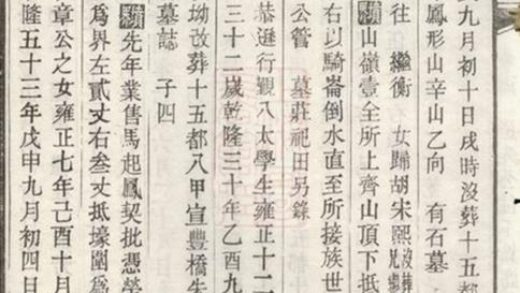 九月初十日戌時沒葬十五都
鳳形山辛山乙向 有石墓
往 繼衡 女歸胡宋熙沒葬兄繼
山嶺壹全所上齊山頂下抵
右以騎崙倒水直至所接族世
公管 墓莊祀田另錄
恭遜行觀八太學生雍正十二
三十二歲乾隆三十年乙酉九
坳改葬十五都八甲宣豐橋朱
墓誌 子四
先年業售馬起鳳契批憑榮
爲界左貳丈右叁丈抵壕圍爲
章公之女雍正七年己酉十月
隆五十三年戊申九月初四日